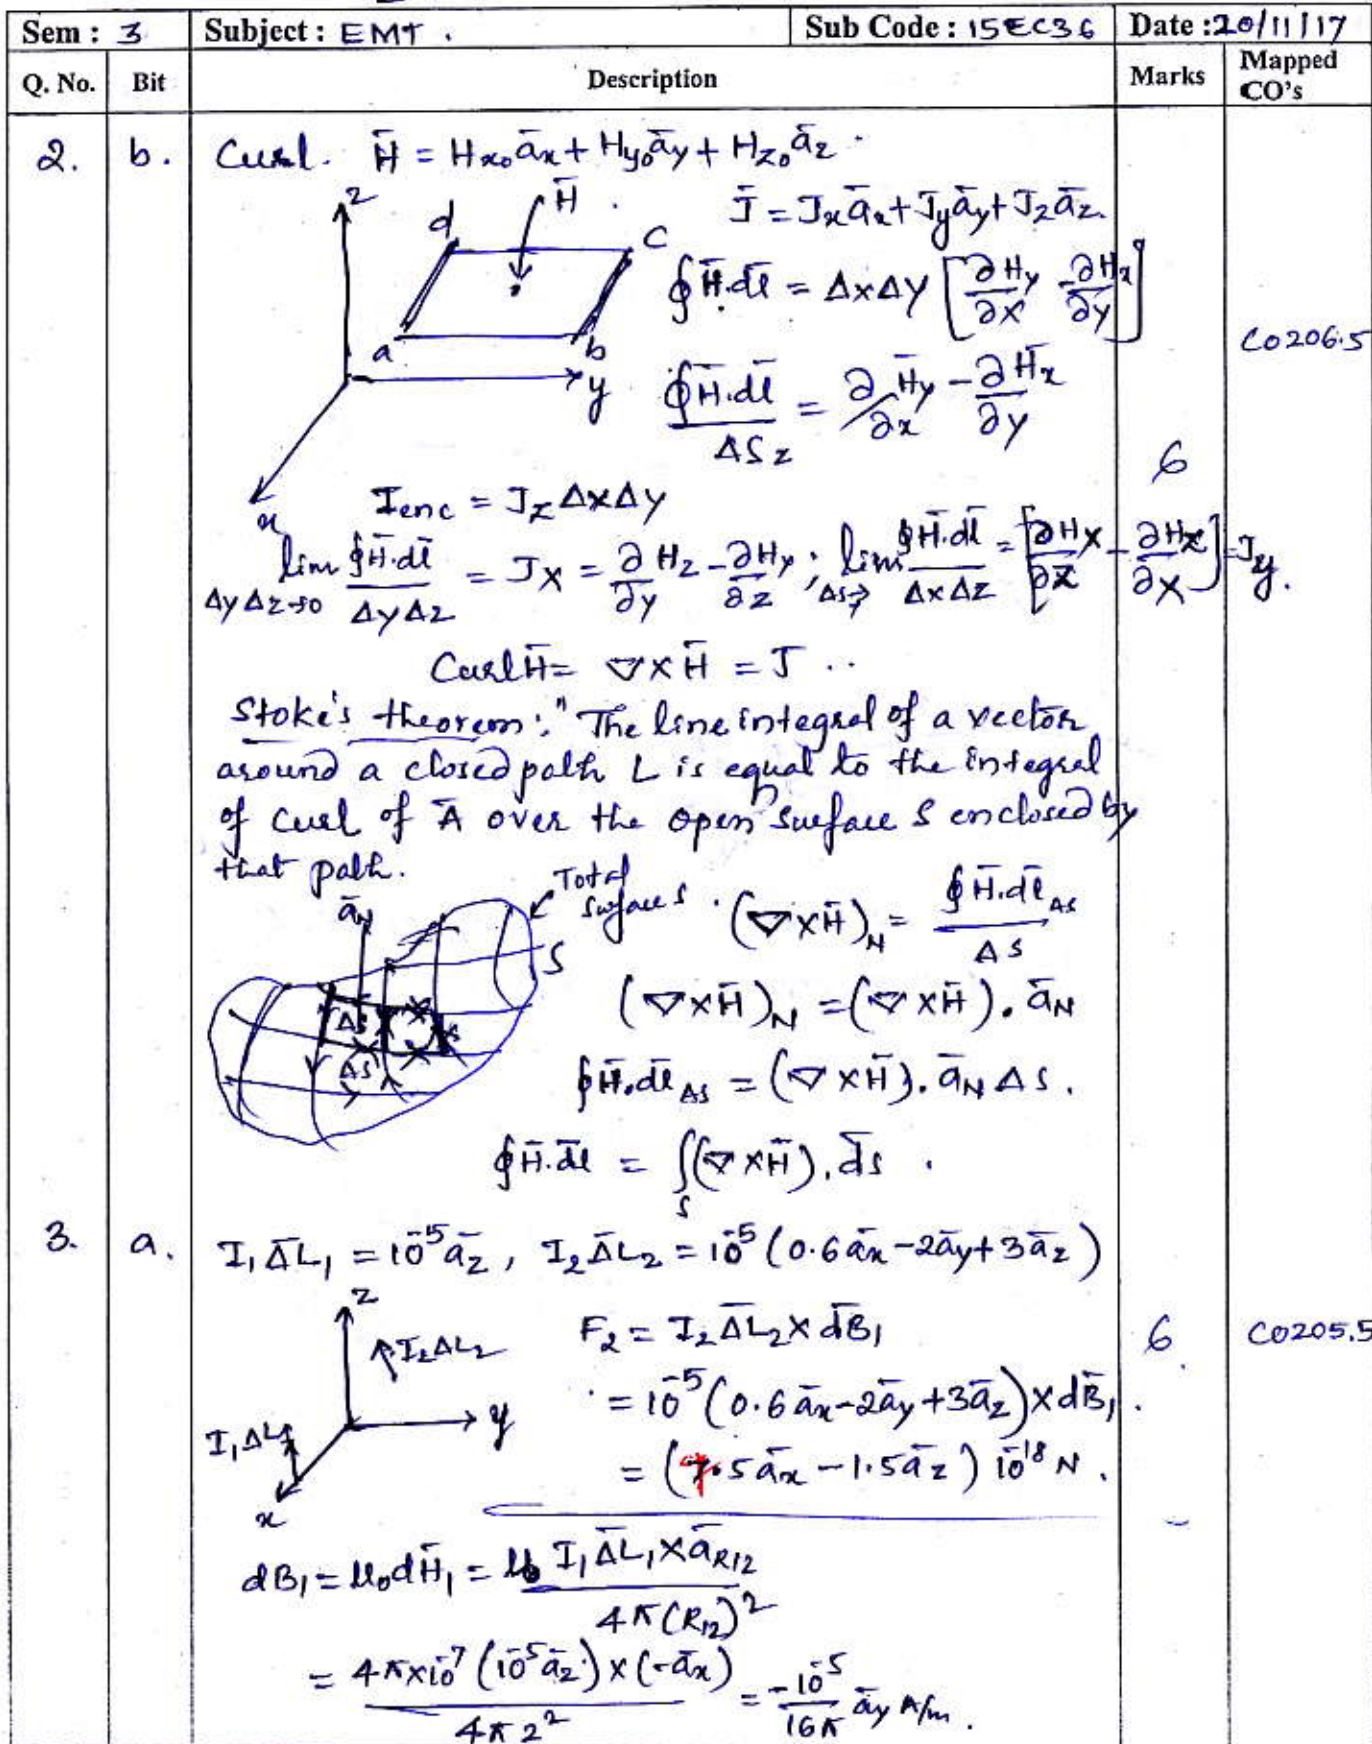 Sem : 3 Subject : EMT . Sub Code : 15EC36 Date : 20/11/17
Q. No. Bit Description Marks Mapped CO's
2. b. Curl. H̄ = Hx₀ āx + Hy₀ āy + Hz₀ āz .
z H̄ . J̄ = Jx āx + Jy āy + Jz āz.
d c
∮H̄.dl̄ = Δx Δy [∂Hy/∂x - ∂Hx/∂y]
a b CO206.5
y ∮H̄.dl̄/ΔSz = ∂/∂x H̄y - ∂H̄x/∂y
6
x Ienc = Jz Δx Δy
lim ΔyΔz→0 ∮H̄.dl̄/ΔyΔz = Jx = ∂/∂y Hz - ∂Hy/∂z ; lim ΔS→ ∮H̄.dl̄/ΔxΔz = [∂Hx/∂z - ∂Hz/∂x] = Jy.
Curl H̄ = ∇ x H̄ = J ..
Stoke's theorem : " The line integral of a vector
around a closed path L is equal to the integral
of curl of Ā over the open surface S enclosed by
that path.
āN Total surface S . (∇xH̄)N = ∮H̄.dl̄ΔS/ΔS
S
ΔS (∇xH̄)N = (∇xH̄). āN
ΔS ∮H̄.dl̄ΔS = (∇xH̄). āN ΔS .
∮H̄.dl̄ = ∫S (∇xH̄). d̄s .
3. a. I₁Δ̄L₁ = 10⁻⁵ āz , I₂Δ̄L₂ = 10⁻⁵ (0.6āx - 2āy + 3āz)
z
I₂ΔL₂ F₂ = I₂Δ̄L₂ x d̄B₁ 6. CO205.5
y = 10⁻⁵ (0.6āx - 2āy + 3āz) x dB̄₁ .
I₁ΔL₁
x = (7.5āx - 1.5āz) 10⁻¹⁸ N .
dB₁ = μ₀dH̄₁ = μ₀ I₁Δ̄L₁ x āR12 / 4π(R₁₂)²
= 4π x 10⁻⁷ (10⁻⁵ āz) x (-āx) / 4π 2² = -10⁻⁵/16π āy A/m .